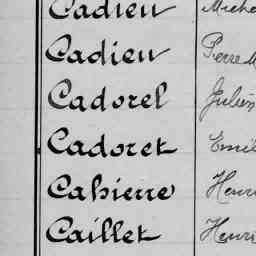 Cadieu Miche
Cadieu Pierre M
Cadorel Julien
Cadoret Emil
Cahierre Henri
Caillet Henri